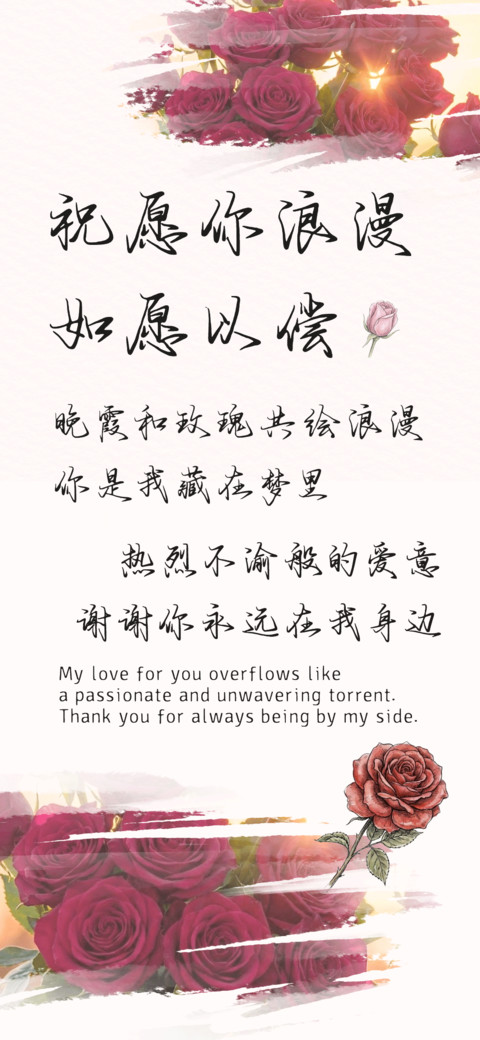 祝愿你浪漫
如愿以偿
晚霞和玫瑰共绘浪漫
你是我藏在梦里
热烈不渝般的爱意
谢谢你永远在我身边
My love for you overflows like
a passionate and unwavering torrent.
Thank you for always being by my side.